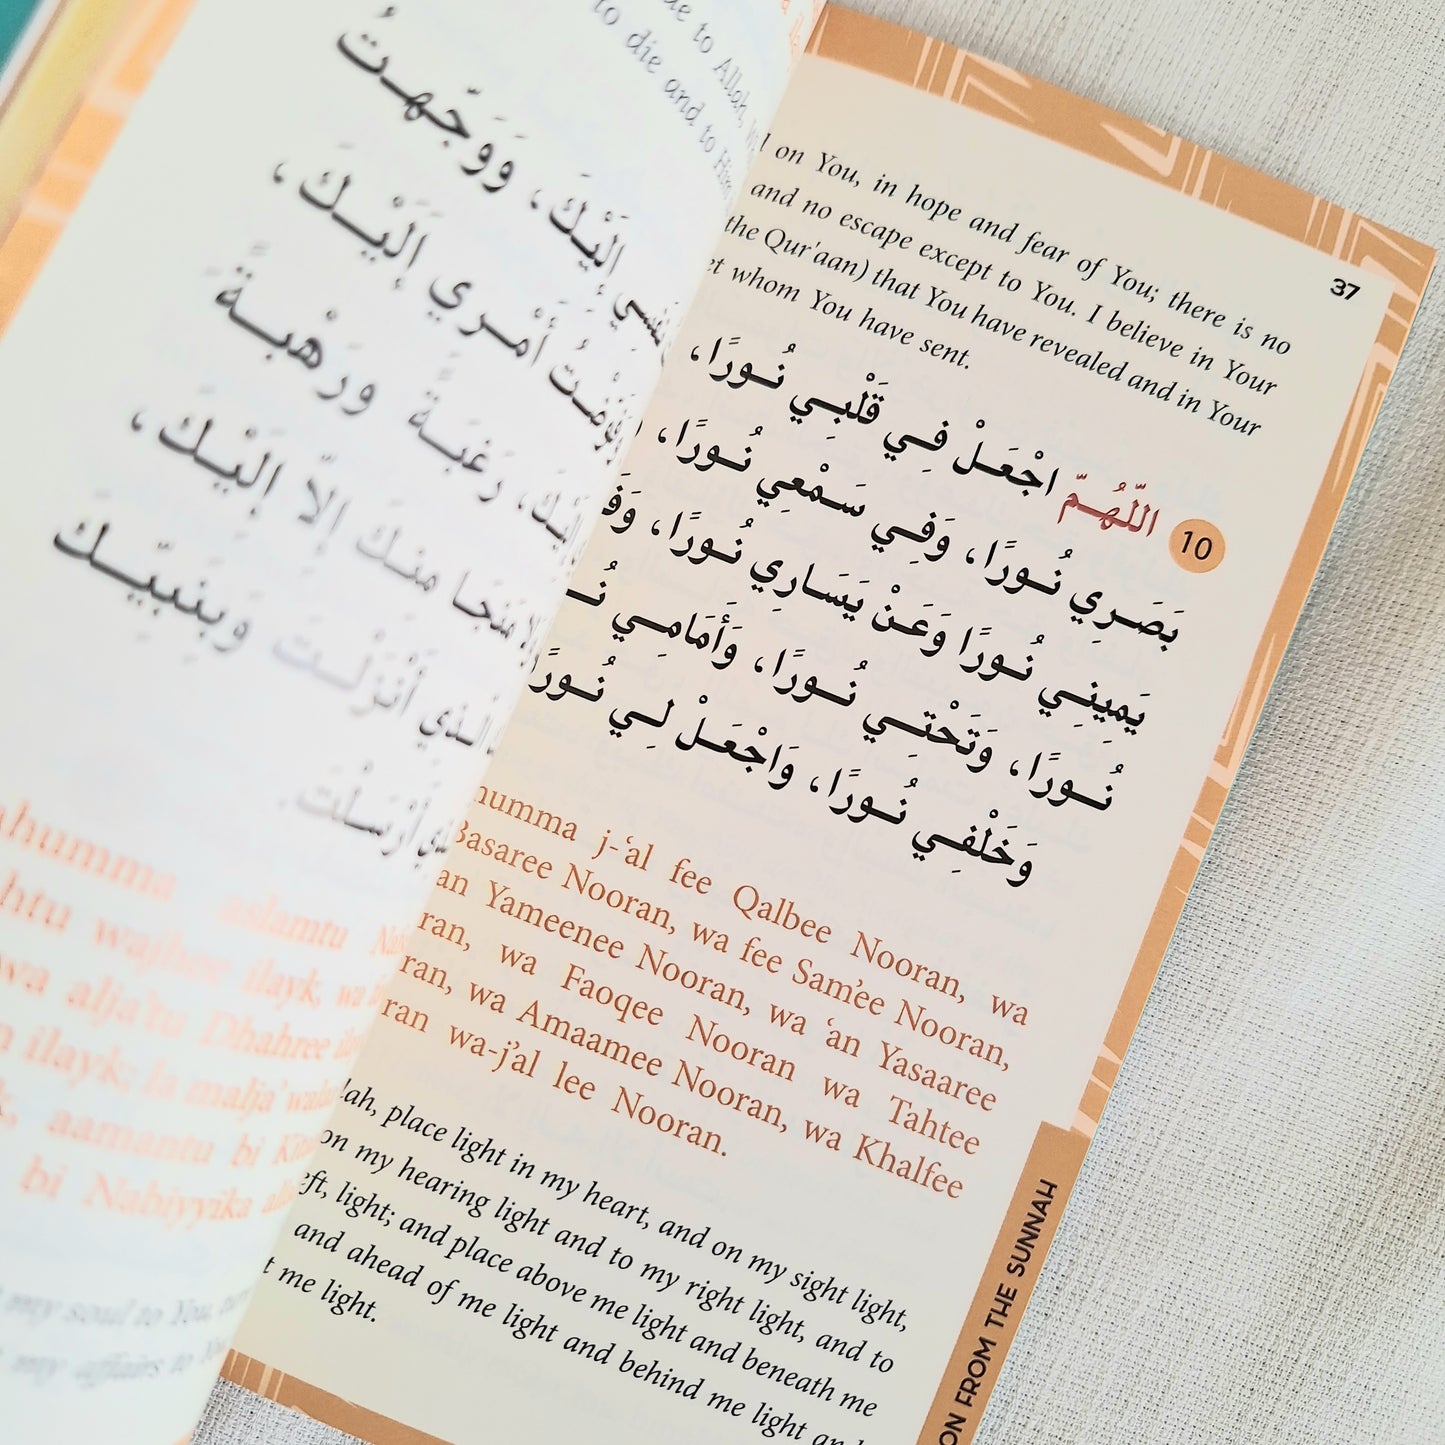 to Allah,
to die and to Him
إِلَيْكَ، وَوَجَّهْتُ
أَمْرِي إِلَيْكَ،
رَغْبَةً وَرَهْبَةً
مَنْجَا مِنكَ إِلَّا إِلَيْكَ،
أَنْزَلْتَ وَبِنَبِيِّكَ
أَرْسَلْتَ.
aslamtu
wajhee ilayk, wa
wa alja'tu Dhahree
ilayk; la malja' wala
aamantu bi
bi Nabiyyika
my soul to You,
my affairs to
37
on You, in hope and fear of You; there is no
and no escape except to You. I believe in Your
the Qur'aan) that You have revealed and in Your
whom You have sent.
10 اللّهُمّ اجْعَلْ فِي قَلْبِي نُورًا،
بَصَرِي نُورًا، وَفِي سَمْعِي نُورًا،
يَمِينِي نُورًا وَعَنْ يَسَارِي نُورًا،
نُورًا، وَتَحْتِي نُورًا، وَأَمَامِي
وَخَلْفِي نُورًا، وَاجْعَلْ لِي نُورًا
humma j-'al fee Qalbee Nooran, wa
Basaree Nooran, wa fee Sam'ee Nooran,
an Yameenee Nooran, wa 'an Yasaaree
ran, wa Faoqee Nooran wa Tahtee
ran, wa Amaamee Nooran, wa Khalfee
ran wa-j'al lee Nooran.
lah, place light in my heart, and on my sight light,
on my hearing light and to my right light, and to
eft, light; and place above me light and beneath me
and ahead of me light and behind me light and
me light.
ON FROM THE SUNNAH